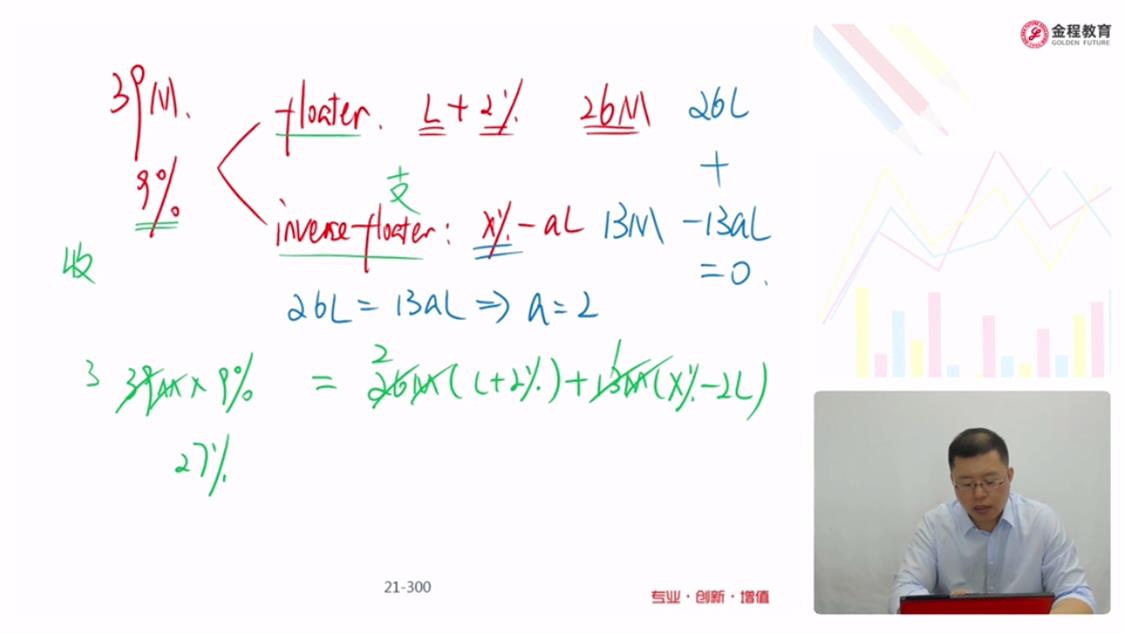 金程教育
GOLDEN FUTURE
39M.
9%
floater. L+2% 26M 26L
+
支
+
inverse floater: x%-aL 13M -13aL
=0.
收
26L = 13aL => a=2
3 39M×9% = 2 26M(L+2%)+1 13M(x%-2L)
27%
21-300
专业·创新·增值